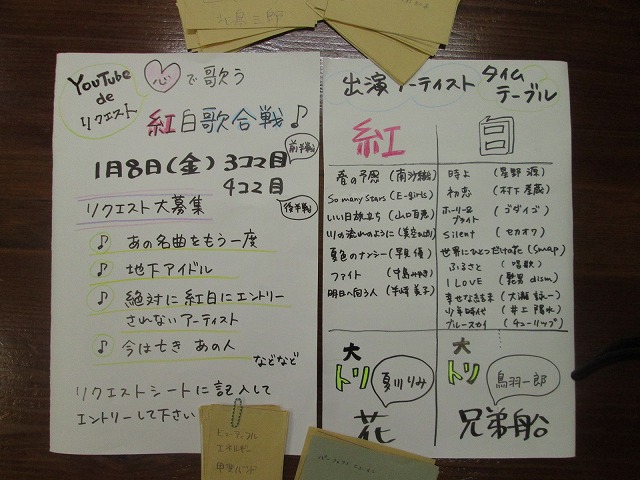 小泉三郎
YouTube
de
リクエスト
心で歌う
紅白歌合戦♪
1月8日(金) 3コマ目 前半戦
4コマ目 後半戦
リクエスト大募集
♪ あの名曲をもう一度
♪ 地下アイドル
♪ 絶対に紅白にエントリー
されないアーティスト
♪ 今は亡き あの人
などなど
リクエストシートに記入して
エントリーして下さい
ビューティフル
エネルギー
甲斐バンド
出演アーティスト タイム
テーブル
紅
春の予感 (南沙織)
So many stars (E-girls)
いい日旅立ち (山口百恵)
川の流れのように (美空ひばり)
夏色のナンシー (早見 優)
ファイト (中島みゆき)
明日へ向う人 (半崎 美子)
大
トリ
夏川りみ
花
白
時よ (星野 源)
初恋 (村下 孝蔵)
ホーリー&
ブライト (ゴダイゴ)
Silent (セカオワ)
世界にひとつだけの花 (Smap)
ふるさと (唱歌)
I LOVE (髭男 dism)
幸せな結末 (大瀧 詠一)
少年時代 (井上 陽水)
ブルースカイ (チューリップ)
大
トリ
鳥羽一郎
兄弟船